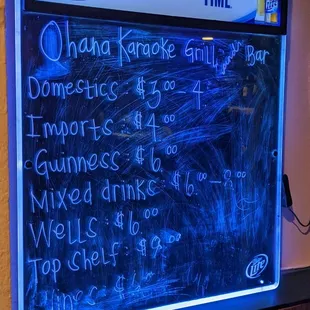 TIME
Ohana Karaoke Grill Bar
Domestics: $3.00 4
Imports: $4.00
Guinness: $6.00
Mixed drinks: $6.00 - 8.00
Wells: $6.00
Top shelf: $9.00
Wines: $6
Lite